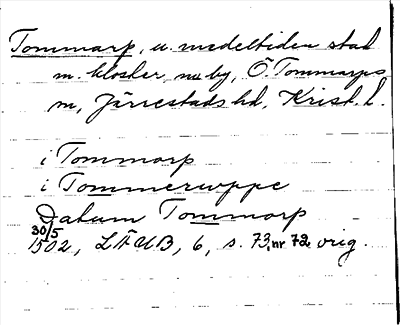 Tommarp, u. medeltiden stad
m. kloster, nu by, Ö. Tommarps
sn, Järrestads hd, Krist. l.
i Tommorp
i Tommerwppe
Datum Tommorp
30/5
1502, LÄUB, 6, s. 73, nr 72 orig.